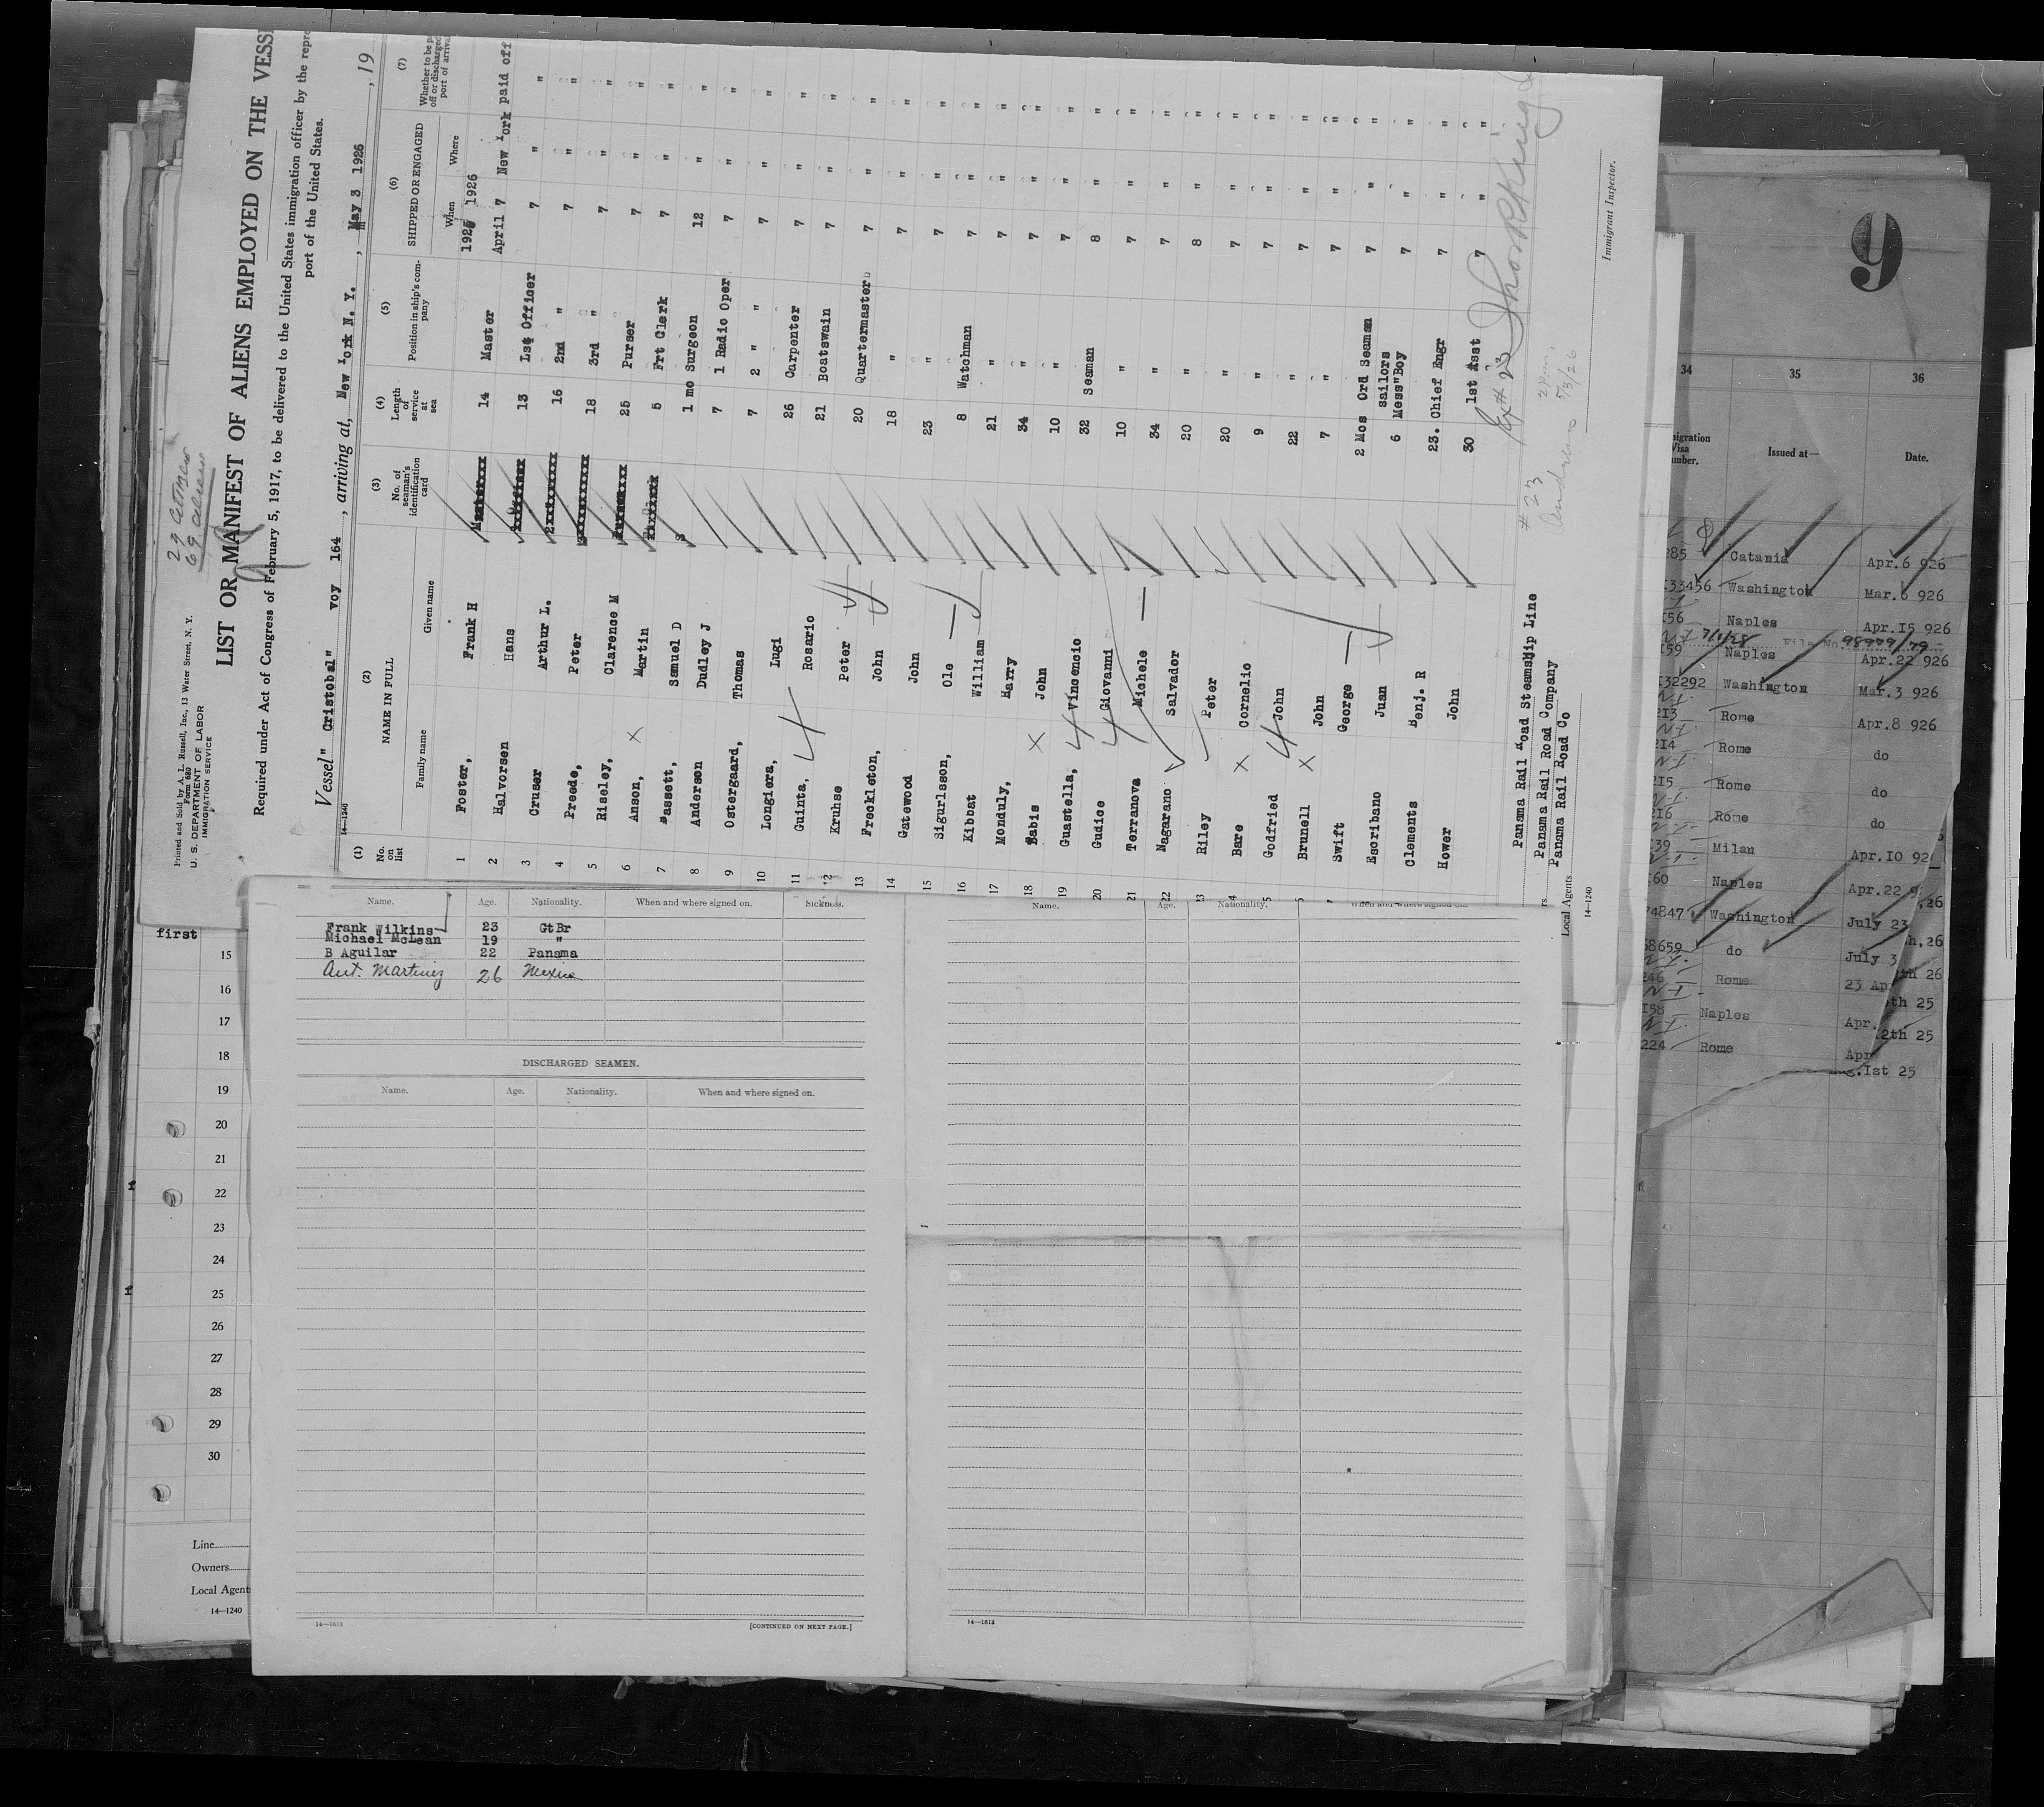 29 citizen
69 aliens
Printed and Sold by A. L. Russell, Inc., 13 Water Street, N. Y.
Form 680
U. S. DEPARTMENT OF LABOR
IMMIGRATION SERVICE
LIST OR MANIFEST OF ALIENS EMPLOYED ON THE VESSE
Required under Act of Congress of February 5, 1917, to be delivered to the United States immigration officer by the repre
port of the United States.
Vessel " Cristobal" voy 164, arriving at, New York N. Y., May 3 1926, 19
14-1240
(1) (2) (3) (4) (5) (6) (7)
No. on list
NAME IN FULL
Family name Given name
No. of seaman's identification card
Length of service at sea
Position in ship's company
SHIPPED OR ENGAGED
When Where
Whether to be p
off or discharged
port of arriva
1926 1926
1 Foster, Frank H 14 Master April 7 New York paid off
2 Halvorsen Hans 13 1st Officer 7 " "
3 Cruser Arthur L. 16 2nd " 7 " "
4 Preede, Peter 18 3rd " 7 " "
5 Riseley, Clarence M 25 Purser 7 " "
6 Anson, Martin 5 Frt Clerk 7 " "
7 Bassett, Samuel D 1 mo Surgeon 12 " "
8 Anderson Dudley J 7 1 Radio Oper 7 " "
9 Ostergaard, Thomas 7 2 " " 7 " "
10 Longiera, Lugi 26 Carpenter 7 " "
11 Guinta, Rosario 21 Boatswain 7 " "
12 Kruhse Peter 20 Quartermaster 7 " "
13 Freckleton, John 18 " 7 " "
14 Gatewood John 23 " 7 " "
15 Sigurlsson, Ole 8 Watchman 7 " "
16 Kibbat William 21 " 7 " "
17 Monduly, Harry 34 " 7 " "
18 Babis John 10 " 7 " "
19 Guastella, Vincencio 32 Seaman 8 " "
20 Gudice Giovanni 10 " 7 " "
21 Terranova Michele 34 " 7 " "
22 Nagarano Salvador 20 " 8 " "
23 Riley Peter 20 " 7 " "
4 Bare Cornelio 9 " 7 " "
5 Godfried John 22 " 7 " "
Brunell John 7 " 7 " "
Swift George 2 Mos Ord Seaman 7 " "
Escribano Juan 6 Sailors Mess"Boy 7 " "
Clements Benj. R 23. Chief Engr 7 " "
Hower John 30 1st Asst 7 " "
Panama Rail Road Steamship Line
Panama Rail Road Company
Panama Rail Road Co
Local Agents
14-1240
# 23
Immigrant Inspector.
5/3/26
9
34 35 36
igration
Visa
umber.
Issued at—
Date.
285 Catania Apr.6 926
I33456 Washington Mar.6 926
I56 Naples Apr.I5 926
7/1/28 File No. 98979/79
I59 Naples Apr.22 926
I32292 Washington Mar.3 926
2I3 Rome Apr.8 926
2I4 Rome do
2I5 Rome do
2I6 Rome do
I39 Milan Apr.IO 92
I60 Naples Apr.22 9
74847 Washington July 23
58659 do July 3
246 Rome 23 Ap
I58 Naples Apr.
224 Rome Apr
,26
h,26
th 26
th 25
2th 25
g.Ist 25
first
15
16
17
18
19
20
21
22
23
24
25
26
27
28
29
30
Line
Owners
Local Agent
14—1240
Name. Age. Nationality. When and where signed on. Sickness.
Frank Wilkins 23 GtBr
Michael McLean 19 "
B Aguilar 22 Panama
Ant. Martinez 26 Mexico
DISCHARGED SEAMEN.
Name. Age. Nationality. When and where signed on.
14—1613
[CONTINUED ON NEXT PAGE.]
Name. Age. Nationality. When and where signed on.
14—1613